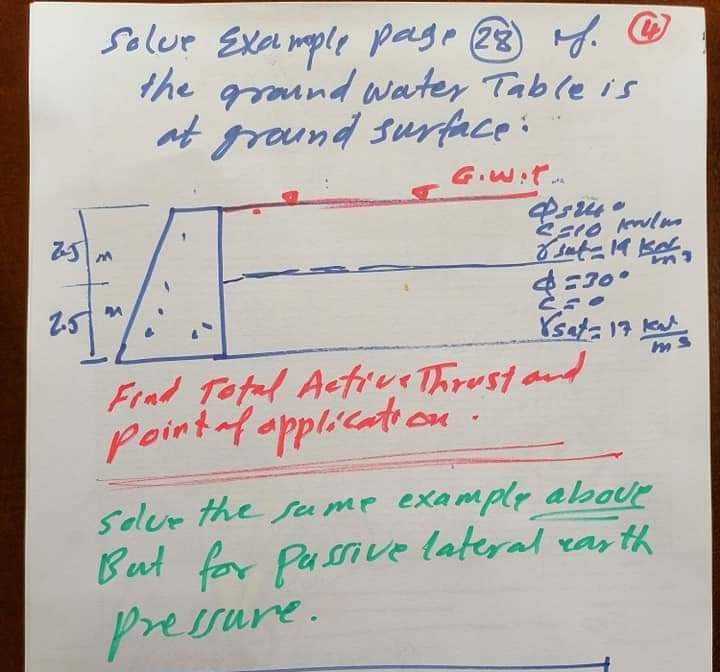 Solve Example page 28 if. 4
the ground water Table is
at ground surface:
G.W.T
φ=24°
C=10 kN/m
2.5 m
γsat=19 kN/m³
φ=30°
2.5 m
C=0
γsat=17 kN/m³
Find Total Active Thrust and
point of application.
Solve the same example above
But for passive lateral earth
pressure.